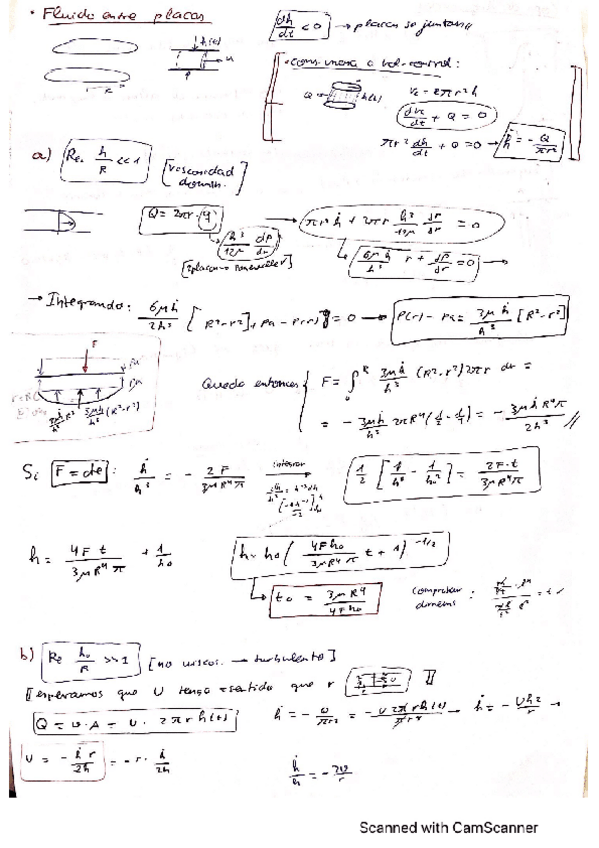 • Fluido entre placas
dh/dt < 0 → placas se juntan
h(t)
R
Q → h(t)
Vc = 2πr²h
dVc/dt + Q = 0
πr² dh/dt + Q = 0 → ḣ = - Q/πr²
a) Re h/R << 1 [viscosidad domin.]
Q = 2πr · q
h³/12μ dP/dr
πr²ḣ + 2πr h³/12μ dP/dr = 0
6μḣ/h³ r + dP/dr = 0 →
→ Integrando: 6μḣ/2h³ [R²-r²] + Pa - P(r) = 0 → P(r) - Pa = 3μḣ/h³ [R²-r²]
F
Pa
3μḣ/h³ (R²-r²)
Queda entonces F = ∫₀ᴿ 3μḣ/h³ (R²-r²) 2πr dr =
= - 3μḣ/h³ 2πR⁴ (1/2 - 1/4) = - 3μḣR⁴π/2h³
Si F = cte : ḣ/h³ = - 2F/3μR⁴π
integrar
1/2 [1/h² - 1/h₀²] = 2F·t/3μR⁴π
h = 4F t/3μR⁴π + 1/h₀
h = h₀ ( 4Fh₀/3μR⁴π t + 1 )^-1/2
t₀ = 3μR⁴/4Fh₀
comprobar dimens :
b) Re h₀/R >> 1 [no viscos. → turbulento]
[esperamos que U tenga sentido que r]
Q = U·A = U · 2πrh(t)
ḣ = - Q/πr² = - U2πrh(t)/πr² → ḣ = - Uh2/r →
U = - ḣr/2h = - r · ḣ/2h
ḣ/h = - 2U/r
Scanned with CamScanner